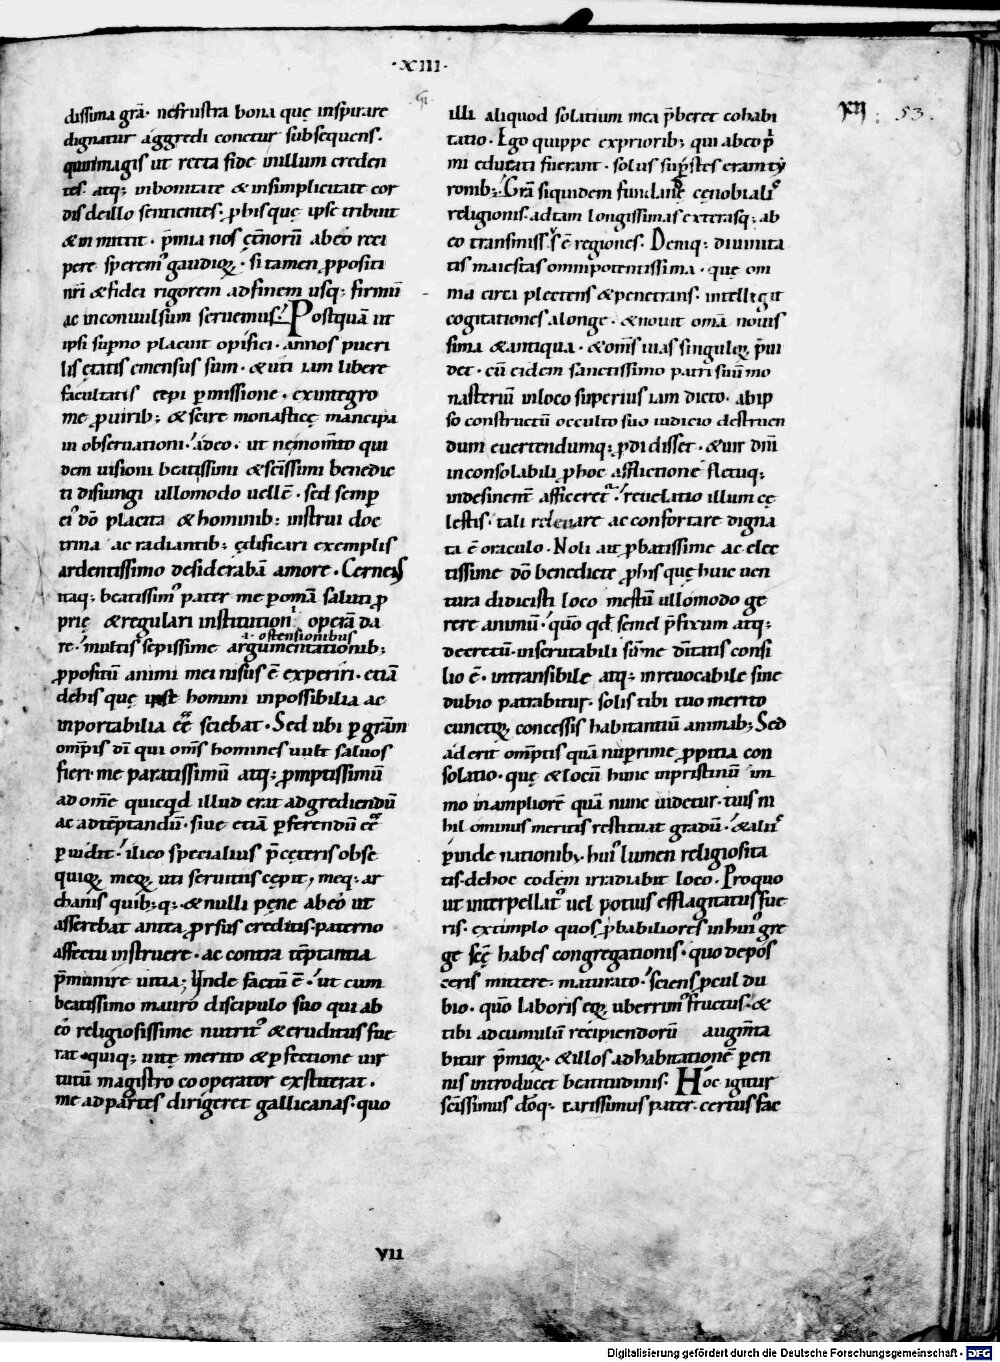 ·XIII·
dissima gr̄a· nefrustra bona quę inspirare
dignatur aggredi conetur subsequens.
quinimagis ut recta fide in illum creden
tes. atq; inbonitate & insimplicitate cor
dis deillo sentientes. p̄ his quę ipse tribuit
& in mittit· p̄mia nos ęt̄norū abeo reci
pere sperem' gaudioꝝ· si tamen ꝓpositi
nr̄i & fidei rigorem adfinem usq; firmū
ac inconuulsum seruemus. Postquā ut
ipsi supno placuit opifici· annos pueri
lis ętatis emensus sum· & uti iam libere
facultatis cepi pmissione· exintegro
me puirib; & scire monasticę mancipa
ui obseruationi· adeo· ut nemom̄to qui
dem uisioni beatissimi & sc̄issimi benedic
ti disiungi ullomodo uellē· sed semp
ei' dō placita & hominib; instrui doc
trina ac radiantib; ędificari exemplis
ardentissimo desiderabā amore· Cerneis
itaq; beatissim' pater me p omā saluti ꝓ
prię & regulari institutioni operā da
re· multis sepissime argumentationib;
a· ostensionibus
ꝓpositū animi mei nisus ē experiri· etiā
dehis quę ipse homini inpossibilia ac
inportabilia ēē sciebat· Sed ubi p grām
omp̄is dī qui om̄s homines uult saluos
fieri· me paratissimū atq; ꝓmptissimū
ad om̄e quicqd illud erat adgrediendū
ac adtēptandū· siue etiā pferendū ēē
puidit· ilico specialius p̄ cęteris obse
quioꝝ meoꝝ uti seruitiis cępit, meq; ar
chanis quib;q;· & nulli pene abeo ut
asserebat antea ꝓrsus creditis· paterno
affectu instruere· ac contra tēptantia
p̄munire uitia; Unde factū ē· ut cum
beatissimo mauro discipulo suo qui ab
eo religiosissime nutrit' & eruditus fue
rat· quiq; uitę merito & pfectione uir
tutū magistro cooperator exstiterat·
me ad partes dirigeret gallicanas· quo
VII
XII
53.
illi aliquod solatium mea p̄beret cohabi
tatio· Ego quippe exprioribus qui abeo pri
mi educati fuerant· solus supstes eram ty
romb; Grā siquidem fundinę cęnobialis
religionis. adtam longissimas exterasq; ab
eo transmissus ē regiones. Demq; diuinita
tis maiestas omnipotentissima· quę om
nia circa plectens & penetrans· intelligit
cogitationes alonge· & nouit omā nouis
sima & antiqua· & om̄s uias singuloꝝ p̄ui
det· cū eidem sanctissimo patri suū mo
nasteriū inloco superius iam dicto· abip
so constructū occulto suo iudicio destruen
dum euertendumq; ꝓdi disset· & uir dn̄i
inconsolabili ꝓ hoc afflictione fletuq;
indesinent̄ afficeretur· reuelatio illum cę
lestis· tali releuare ac confortare digna
ta ē oraculo· Noli aut p̄batissime ac elec
tissime dō benedicte ꝓ his quę huic uen
tura didicisti loco mestū ullomodo ge
rere animū· quō qd semel p̄fixum atq;
decretū· inscrutabili sūme dīitatis consi
lio ē· intransibile atq; inreuocabile sine
dubio patrabitur· solis tibi tuo merito
cunctoꝝ concessis habitantiū animab; Sed
aderit omp̄tis quā nuprime ꝓpitia con
solatio· quę & locū hunc inpristinū im
mo inampliorē quā nunc uidetur· tuis ni
hil ominus meritis restituat gradū· & aliis
pinde nationib, hui' lumen religiosita
tis· dehoc eodem irradiabit loco· Proquo
ut interpellat' uel potius efflagitatus fue
ris· extimplo quos p̄babiliores inhui' gre
ge sc̄ę habes congregationis· quo depos
ceris mittere· maturato· sciens ꝓcul du
bio· quō laboris eoꝝ uberrim' fructus· &
tibi adcumulū recipiendorū augm̄ta
bitur p̄mioꝝ· & illos adhabitationē pen
nis introducet beatitudinis· Hoc igitur
sc̄issimus dōq; carissimus pater· certus fac